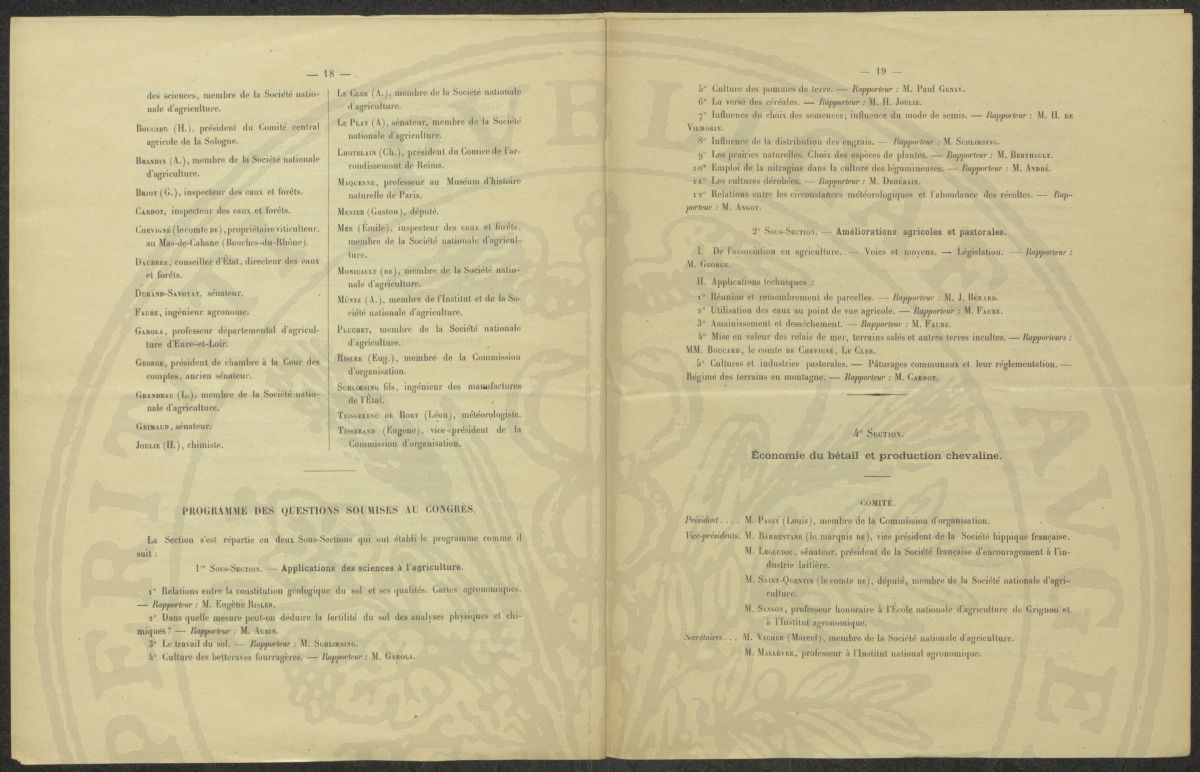 — 18 —
des sciences, membre de la Société natio-
nale d'agriculture.
Boccard (H.), président du Comité central
agricole de la Sologne.
Brandin (A.), membre de la Société nationale
d'agriculture.
Briot (G.), inspecteur des eaux et forêts.
Cardot, inspecteur des eaux et forêts.
Chevigné (le comte de), propriétaire viticulteur,
au Mas-de-Cabane (Bouches-du-Rhône).
Daubrée, conseiller d'État, directeur des eaux
et forêts.
Durand-Savoyat, sénateur.
Faure, ingénieur agronome.
Garola, professeur départemental d'agricul-
ture d'Eure-et-Loir.
George, président de chambre à la Cour des
comptes, ancien sénateur.
Grandeau (L.), membre de la Société natio-
nale d'agriculture.
Grimaud, sénateur.
Joulie (H.), chimiste.
Le Cler (A.), membre de la Société nationale
d'agriculture.
Le Play (A), sénateur, membre de la Société
nationale d'agriculture.
Lhotelain (Ch.), président du Comice de l'ar-
rondissement de Reims.
Maquenne, professeur au Muséum d'histoire
naturelle de Paris.
Menier (Gaston), député.
Mer (Émile), inspecteur des eaux et forêts,
membre de la Société nationale d'agricul-
ture.
Monicault (de), membre de la Société natio-
nale d'agriculture.
Müntz (A.), membre de l'Institut et de la So-
ciété nationale d'agriculture.
Pluchet, membre de la Société nationale
d'agriculture.
Risler (Eug.), membre de la Commission
d'organisation.
Schlœsing fils, ingénieur des manufactures
de l'État.
Teisserenc de Bort (Léon), météorologiste.
Tisserand (Eugène), vice-président de la
Commission d'organisation.
PROGRAMME DES QUESTIONS SOUMISES AU CONGRÈS.
La Section s'est répartie en deux Sous-Sections qui ont établi le programme comme il
suit :
1re Sous-Section. — Applications des sciences à l'agriculture.
1° Relations entre la constitution géologique du sol et ses qualités. Cartes agronomiques.
— Rapporteur : M. Eugène Risler.
2° Dans quelle mesure peut-on déduire la fertilité du sol des analyses physiques et chi-
miques ? — Rapporteur : M. Aubin.
3° Le travail du sol. — Rapporteur : M. Schlœsing.
4° Culture des betteraves fourragères. — Rapporteur : M. Garola.
— 19 —
5° Culture des pommes de terre. — Rapporteur : M. Paul Genay.
6° La verse des céréales. — Rapporteur : M. H. Joulie.
7° Influence du choix des semences; influence du mode de semis. — Rapporteur : M. H. de
Vilmorin.
8° Influence de la distribution des engrais. — Rapporteur : M. Schlœsing.
9° Les prairies naturelles. Choix des espèces de plantes. — Rapporteur : M. Berthault.
10° Emploi de la nitragine dans la culture des légumineuses. — Rapporteur : M. André.
11° Les cultures dérobées. — Rapporteur : M. Dehérain.
12° Relations entre les circonstances météorologiques et l'abondance des récoltes. — Rap-
porteur : M. Angot.
2e Sous-Section. — Améliorations agricoles et pastorales.
I. De l'association en agriculture. — Voies et moyens. — Législation. — Rapporteur :
M. George.
II. Applications techniques :
1° Réunion et remembrement de parcelles. — Rapporteur : M. J. Bénard.
2° Utilisation des eaux au point de vue agricole. — Rapporteur : M. Faure.
3° Assainissement et dessèchement. — Rapporteur : M. Faure.
4° Mise en valeur des relais de mer, terrains salés et autres terres incultes. — Rapporteurs :
MM. Boccard, le comte de Chevigné, Le Cler.
5° Cultures et industries pastorales. — Pâturages communaux et leur réglementation. —
Régime des terrains en montagne. — Rapporteur : M. Cardot.
4e Section.
Économie du bétail et production chevaline.
COMITÉ.
Président.... M. Passy (Louis), membre de la Commission d'organisation.
Vice-présidents. M. Barbentane (le marquis de), vice président de la Société hippique française.
M. Legludic, sénateur, président de la Société française d'encouragement à l'in-
dustrie laitière.
M. Saint-Quentin (le comte de), député, membre de la Société nationale d'agri-
culture.
M. Sanson, professeur honoraire à l'École nationale d'agriculture de Grignon et
à l'Institut agronomique.
Secrétaires... M. Vacher (Marcel), membre de la Société nationale d'agriculture.
M. Mallèvre, professeur à l'Institut national agronomique.